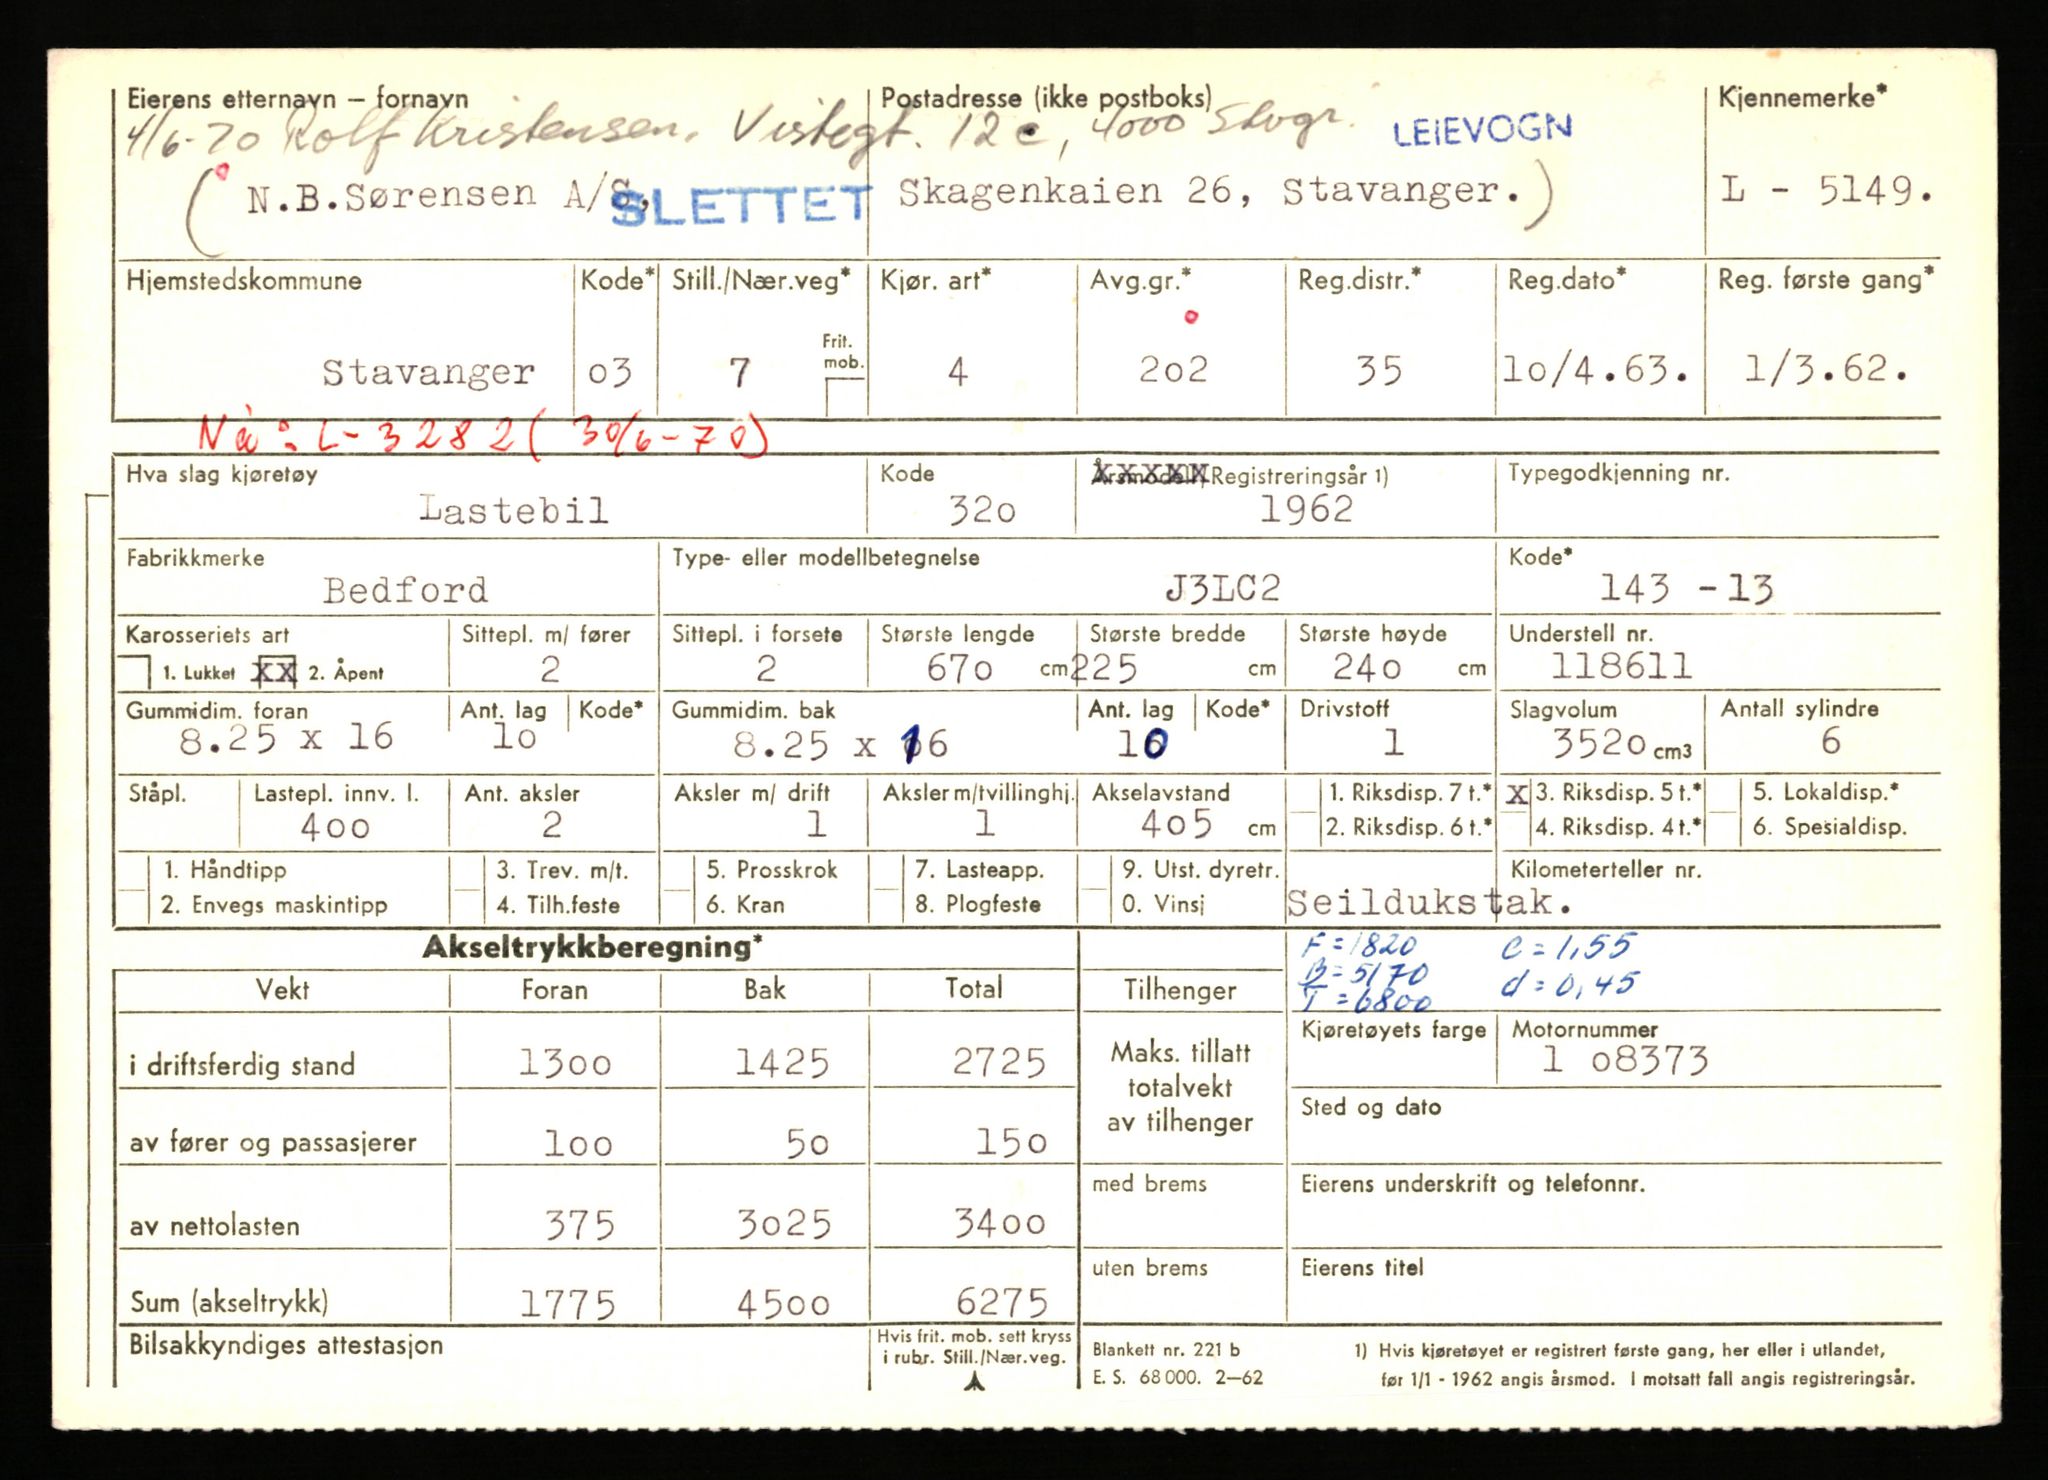 Eierens etternavn – fornavn Postadresse (ikke postboks) Kjennemerke*
4/6-70 Rolf Kristensen, Vistegt. 12c, 4000 Stvgr. LEIEVOGN
( N.B.Sørensen A/S, SLETTET Skagenkaien 26, Stavanger.) L - 5149.
Hjemstedskommune Kode* Still./Nær.veg* Kjør. art* Avg.gr.* Reg.distr.* Reg.dato* Reg. første gang*
Frit. mob.
Stavanger 03 7 4 202 35 10/4.63. 1/3.62.
Nå: L-3282 (30/6-70)
Hva slag kjøretøy Kode Årsmodell/Registreringsår 1) Typegodkjenning nr.
Lastebil 320 1962
Fabrikkmerke Type- eller modellbetegnelse Kode*
Bedford J3LC2 143 -13
Karosseriets art Sittepl. m/ fører Sittepl. i forsete Største lengde Største bredde Største høyde Understell nr.
1. Lukket XX 2. Åpent 2 2 670 cm 225 cm 240 cm 118611
Gummidim. foran Ant. lag Kode* Gummidim. bak Ant. lag Kode* Drivstoff Slagvolum Antall sylindre
8.25 x 16 10 8.25 x 16 10 1 3520 cm3 6
Ståpl. Lastepl. innv. l. Ant. aksler Aksler m/ drift Aksler m/tvillinghj. Akselavstand 1. Riksdisp. 7 t.* X 3. Riksdisp. 5 t.* 5. Lokaldisp.*
400 2 1 1 405 cm 2. Riksdisp. 6 t.* 4. Riksdisp. 4 t.* 6. Spesialdisp.
1. Håndtipp 3. Trev. m/t. 5. Prosskrok 7. Lasteapp. 9. Utst. dyretr. Kilometerteller nr.
2. Envegs maskintipp 4. Tilh.feste 6. Kran 8. Plogfeste 0. Vinsj Seildukstak.
Akseltrykkberegning* F = 1820 c = 1,55
B = 5170 d = 0,45
Vekt Foran Bak Total Tilhenger T = 6800
Kjøretøyets farge Motornummer
i driftsferdig stand 1300 1425 2725 Maks. tillatt totalvekt av tilhenger 1 08373
Sted og dato
av fører og passasjerer 100 50 150
med brems Eierens underskrift og telefonnr.
av nettolasten 375 3025 3400
uten brems Eierens titel
Sum (akseltrykk) 1775 4500 6275
Bilsakkyndiges attestasjon Hvis frit. mob. sett kryss i rubr. Still./Nær.veg.
Blankett nr. 221 b 1) Hvis kjøretøyet er registrert første gang, her eller i utlandet,
E. S. 68 000. 2–62 før 1/1 - 1962 angis årsmod. I motsatt fall angis registreringsår.